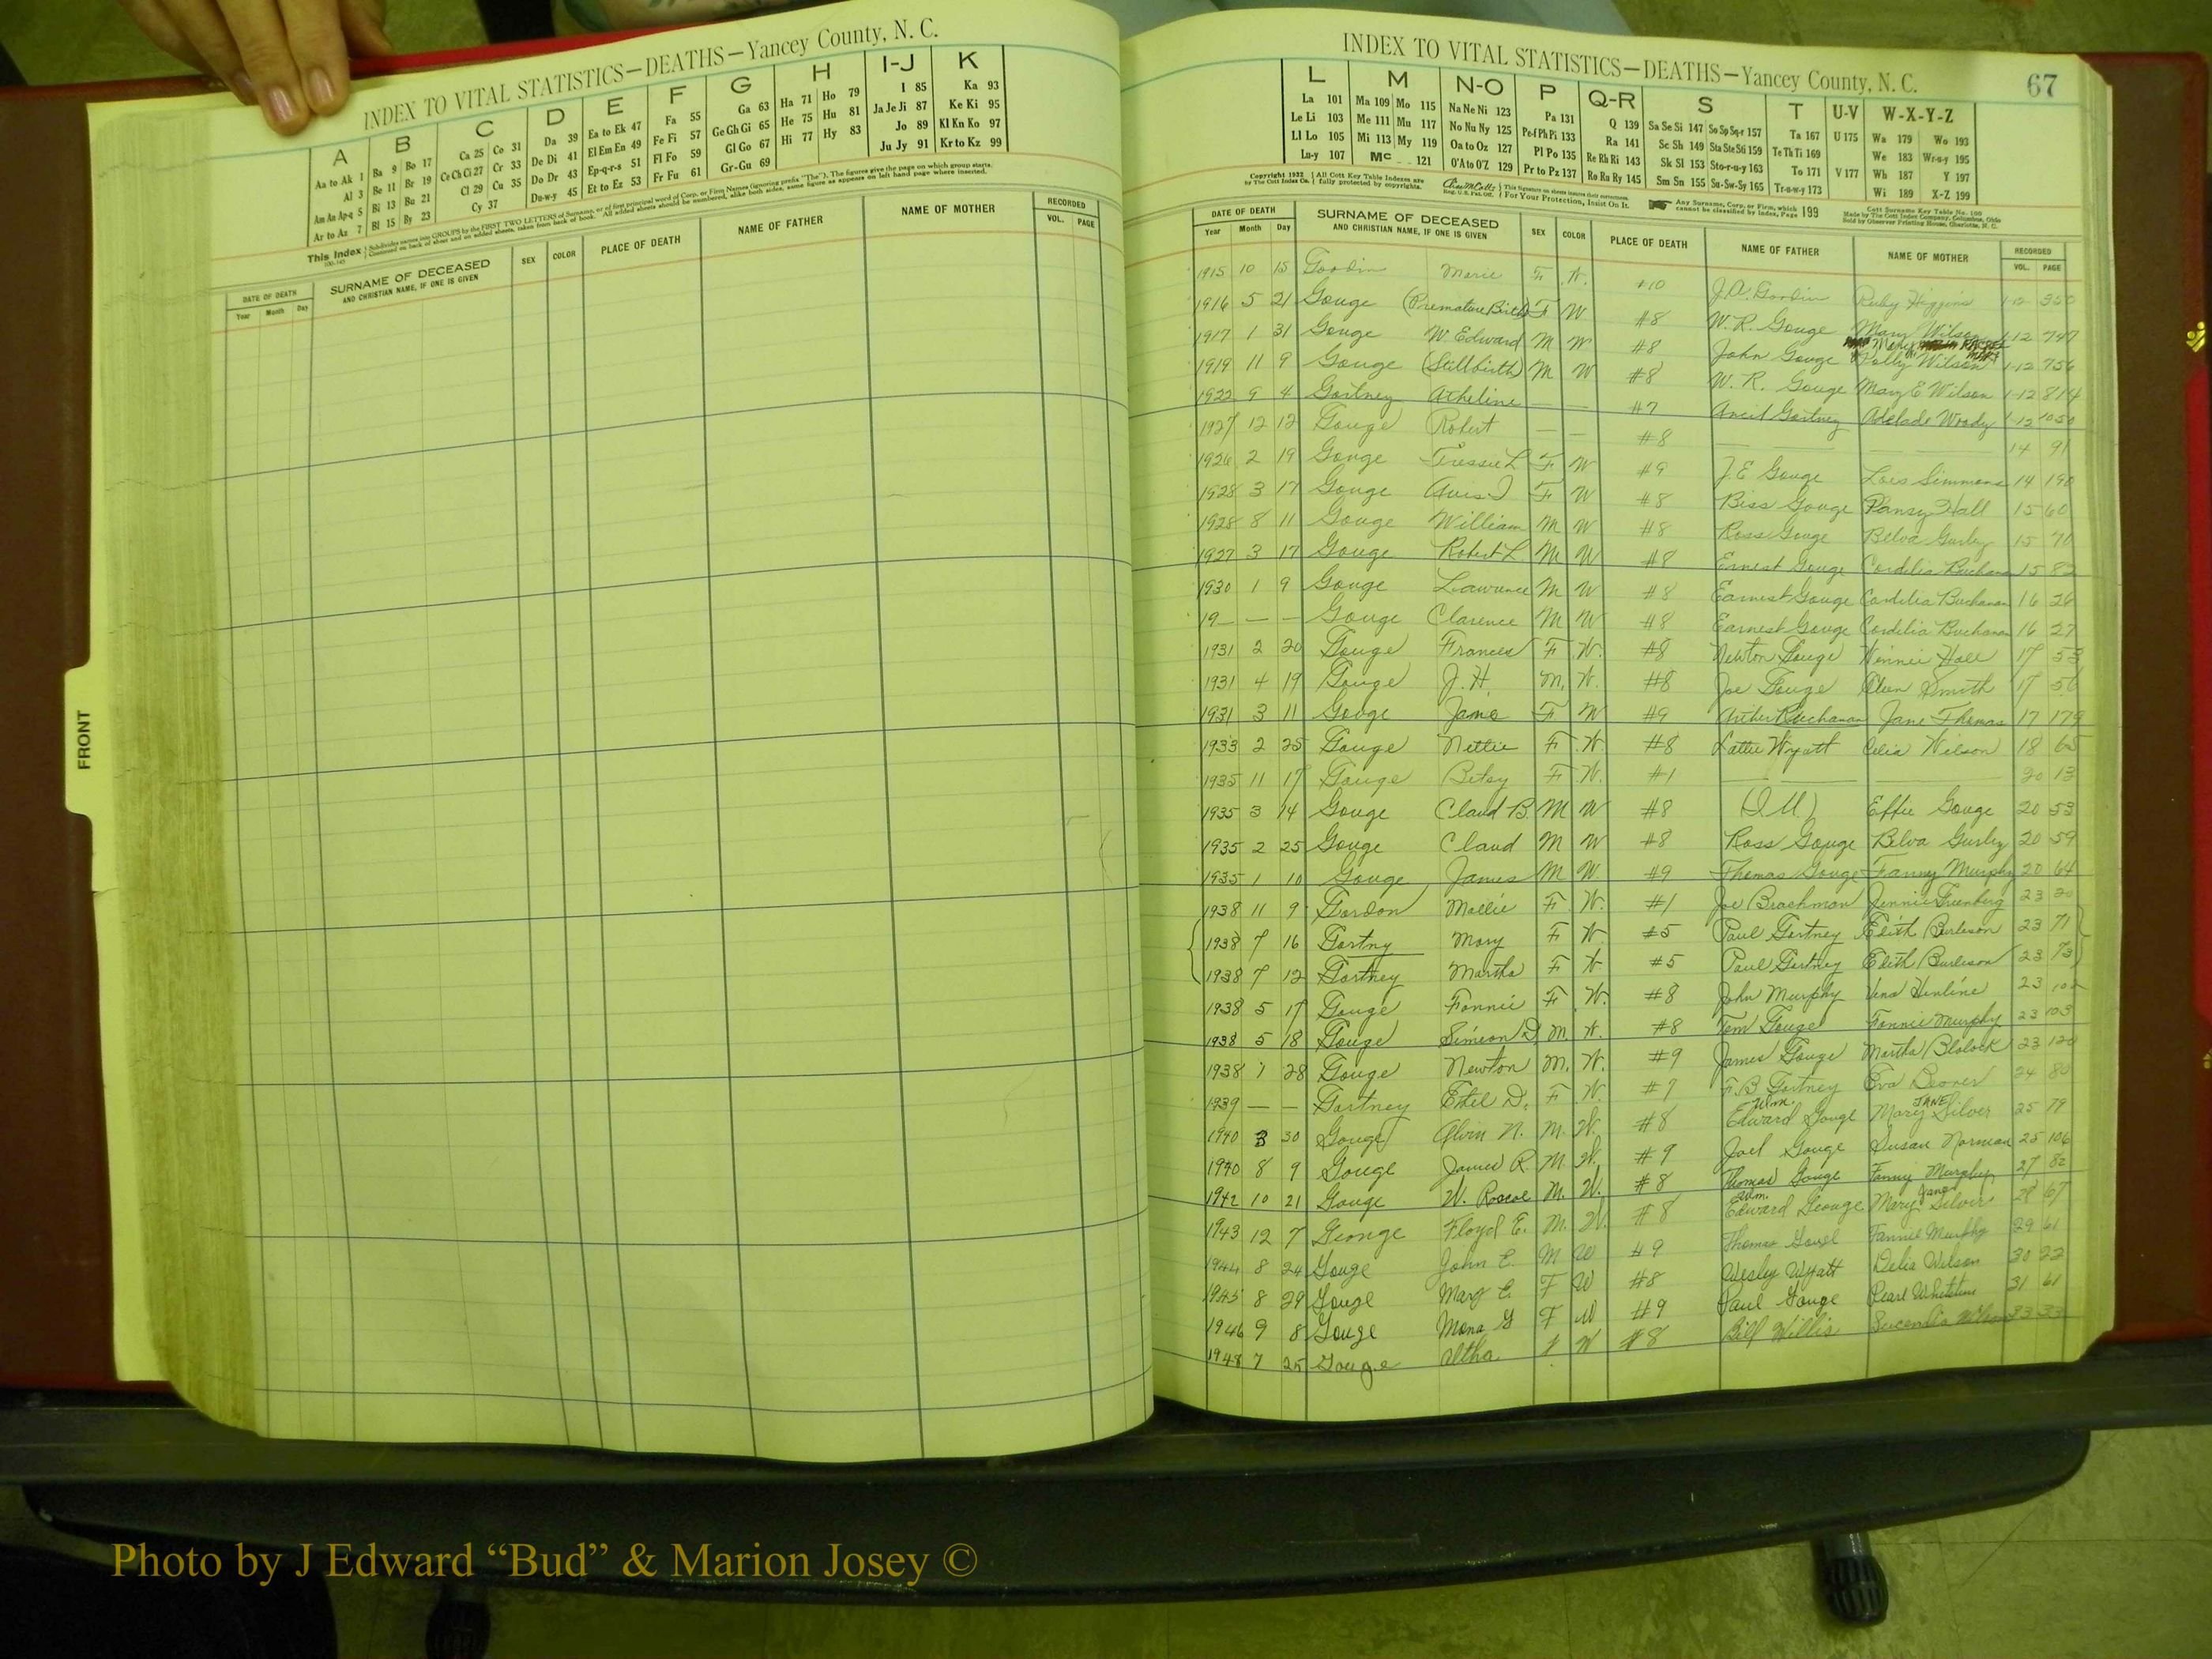 INDEX TO VITAL STATISTICS—DEATHS—Yancey County, N. C.
A B C D E F G H I-J K
Aa to Ak 1 Ba 9 Bo 17 Ca 25 Co 31 Da 39 Ea to Ek 47 Fa 55 Ga 63 Ha 71 Ho 79 I 85 Ka 93
Al 3 Be 11 Br 19 Ce Ch Ci 27 Cr 33 De Di 41 El Em En 49 Fe Fi 57 Ge Gh Gi 65 He 75 Hu 81 Ja Je Ji 87 Ke Ki 95
Am An Ap-q 5 Bi 13 Bu 21 Cl 29 Cu 35 Do Dr 43 Ep-q-r-s 51 Fl Fo 59 Gl Go 67 Hi 77 Hy 83 Jo 89 Kl Kn Ko 97
Ar to Az 7 Bl 15 By 23 Cy 37 Du-w-y 45 Et to Ez 53 Fr Fu 61 Gr-Gu 69 Ju Jy 91 Kr to Kz 99
This Index Subdivides names into GROUPS by the FIRST TWO LETTERS of Surname, or of first principal word of Corp. or Firm Names (ignoring prefix "The"). The figures give the page on which group starts.
Continued on back of sheet and on added sheets, taken from back of book. All added sheets should be numbered, alike both sides, same figure as appears on left hand page where inserted.
DATE OF DEATH SURNAME OF DECEASED SEX COLOR PLACE OF DEATH NAME OF FATHER NAME OF MOTHER RECORDED
Year Month Day AND CHRISTIAN NAME, IF ONE IS GIVEN VOL. PAGE
FRONT
INDEX TO VITAL STATISTICS—DEATHS—Yancey County, N. C. 67
L M N-O P Q-R S T U-V W-X-Y-Z
La 101 Ma 109 Mo 115 Na Ne Ni 123 Pa 131 Q 139 Sa Se Si 147 So Sp Sq-r 157 Ta 167 U 175 Wa 179 Wo 193
Le Li 103 Me 111 Mu 117 No Nu Ny 125 Pe-f Ph Pi 133 Ra 141 Sc Sh 149 Sta Ste Sti 159 Te Th Ti 169 We 183 Wr-u-y 195
Ll Lo 105 Mi 113 My 119 On to Oz 127 Pl Po 135 Re Rh Ri 143 Sk Sl 153 Sto-r-u-y 163 To 171 V 177 Wh 187 Y 197
Lu-y 107 Mc 121 O'A to O'Z 129 Pr to Pz 137 Ro Ru Ry 145 Sm Sn 155 Su-Sw-Sy 165 Tr-u-w-y 173 Wi 189 X-Z 199
Copyright 1932 by The Cott Index Co. All Cott Key Table Indexes are fully protected by copyrights. For Your Protection, Insist On It. Any Surname, Corp. or Firm, which cannot be classified by Index, Page 199
DATE OF DEATH SURNAME OF DECEASED SEX COLOR PLACE OF DEATH NAME OF FATHER NAME OF MOTHER RECORDED
Year Month Day AND CHRISTIAN NAME, IF ONE IS GIVEN VOL. PAGE
1915 10 15 Goodin Marie F W. #10 J.A. Goodin Ruby Higgins 1-12 350
1916 5 21 Gouge (Premature Birth) F W #8 W. R. Gouge Mary Wilson 1-12 747
1917 1 31 Gouge W. Edward M W #8 John Gouge Polly Wilson 1-12 756
1919 11 9 Gouge (Stillbirth) M W #8 W. R. Gouge Mary E Wilson 1-12 814
1922 9 4 Gortney Atheline — — #7 Gortney Woody 1-12 1050
1927 12 12 Gouge Robert — — #8 — — 14 91
1926 2 19 Gouge Tressie L F W #9 J. E Gouge Lois Simmons 14 190
1928 3 17 Gouge Avis I F W #8 Biss Gouge Pansy Hall 15 60
1928 8 11 Gouge William M W #8 Ross Gouge Belva Gurley 15 70
1927 3 17 Gouge Robert L M W #8 Ernest Gouge Cordelia Buchanan 15 82
1930 1 9 Gouge Lawrence M W #8 Earnest Gouge Cordelia Buchanan 16 26
19— — — Gouge Clarence M W #8 Earnest Gouge Cordelia Buchanan 16 27
1931 2 20 Gouge Frances F W. #8 Newton Gouge Winnie Hall 17 53
1931 4 19 Gouge J. H. M. W. #8 Joe Gouge Smith 17 56
1931 3 11 Gouge Jane F W #9 Arther Buchanan Jane Thomas 17 179
1933 2 25 Gouge Nettie F W. #8 Wyatt Celia Wilson 18 65
1935 11 17 Gouge Betsy F W. #1 — — 20 13
1935 3 14 Gouge Claud B. M W #8 Effie Gouge 20 53
1935 2 25 Gouge Claud M W #8 Ross Gouge Belva Gurley 20 59
1935 1 10 Gouge James M W. #9 Thomas Gouge Fanny Murphy 20 64
1938 11 9 Gordon Mollie F W. #1 Joe Brachman Jennie 23 20
1938 7 16 Gortny Mary F W #5 Paul Gortney Edith Burleson 23 71
1938 7 12 Gortney Martha F W #5 Paul Gortney Edith Burleson 23 73
1938 5 17 Gouge Fannie F W. #8 John Murphy 23 102
1938 5 18 Gouge Simeon D. M. W. #8 Tom Gouge Fannie Murphy 23 103
1938 7 28 Gouge Newton M. W. #9 James Gouge Martha Blalock 23 120
1939 — — Gortney Ethel D. F W. #7 F. B Gortney Eva Deaver 24 80
1940 3 30 Gouge Alvin N. M. W. #8 Wm. Edward Gouge Mary JANE Silver 25 79
1940 8 9 Gouge James R. M. W. #9 Joel Gouge Susan Norman 25 106
1942 10 21 Gouge W. Roscoe M. W. #8 Thomas Gouge Fanny Murphy 27 82
1943 12 7 George Floyd E. M. W. #8 Wm. Edward George Mary Jane Silver 28 67
1944 8 24 Gouge John E. M W #9 Thomas Fannie Murphy 29 61
1945 8 29 Gouge Mary E. F W #8 Wesley Wyatt Delia Wilson 30 22
1946 9 8 Gouge Mona G F W #9 Paul Gouge Pearl 31 61
1948 7 25 Gouge Altha F W #8 Bill Willis 33 33
Photo by J Edward “Bud” & Marion Josey ©